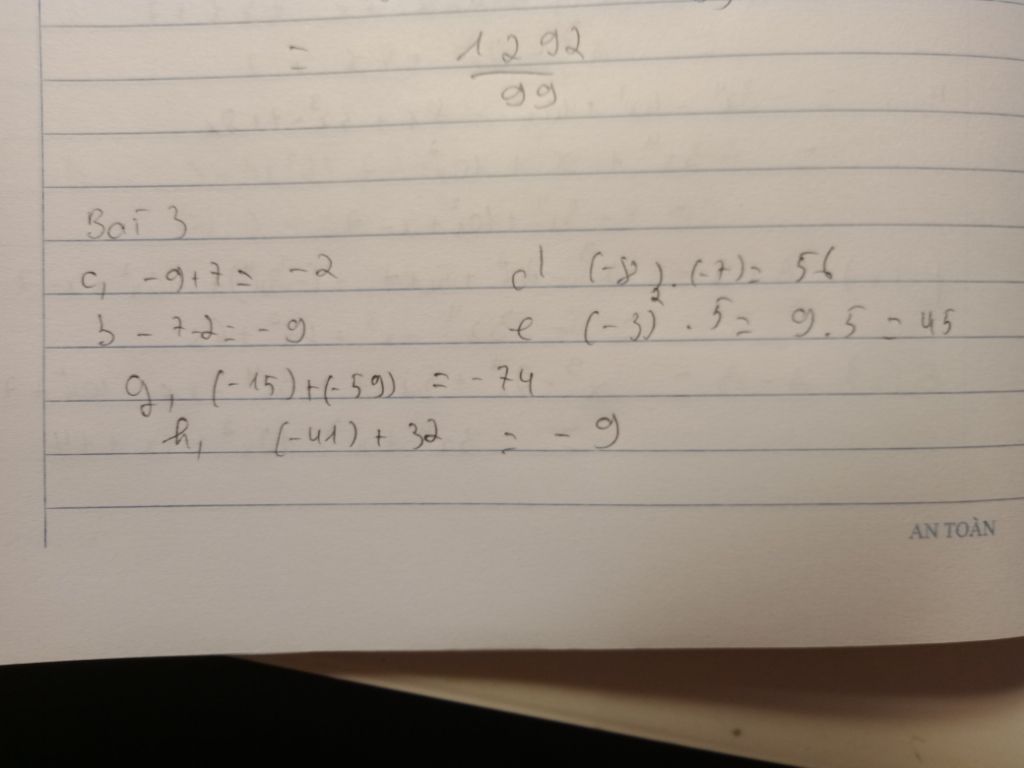 = 1292/99
Bài 3
c, -9+7= -2
d (-8).(-7)= 56
b -7-2= -9
e (-3)² . 5= 9.5 = 45
g, (-15)+(-59) = -74
h, (-41) + 32 = - 9
AN TOÀN